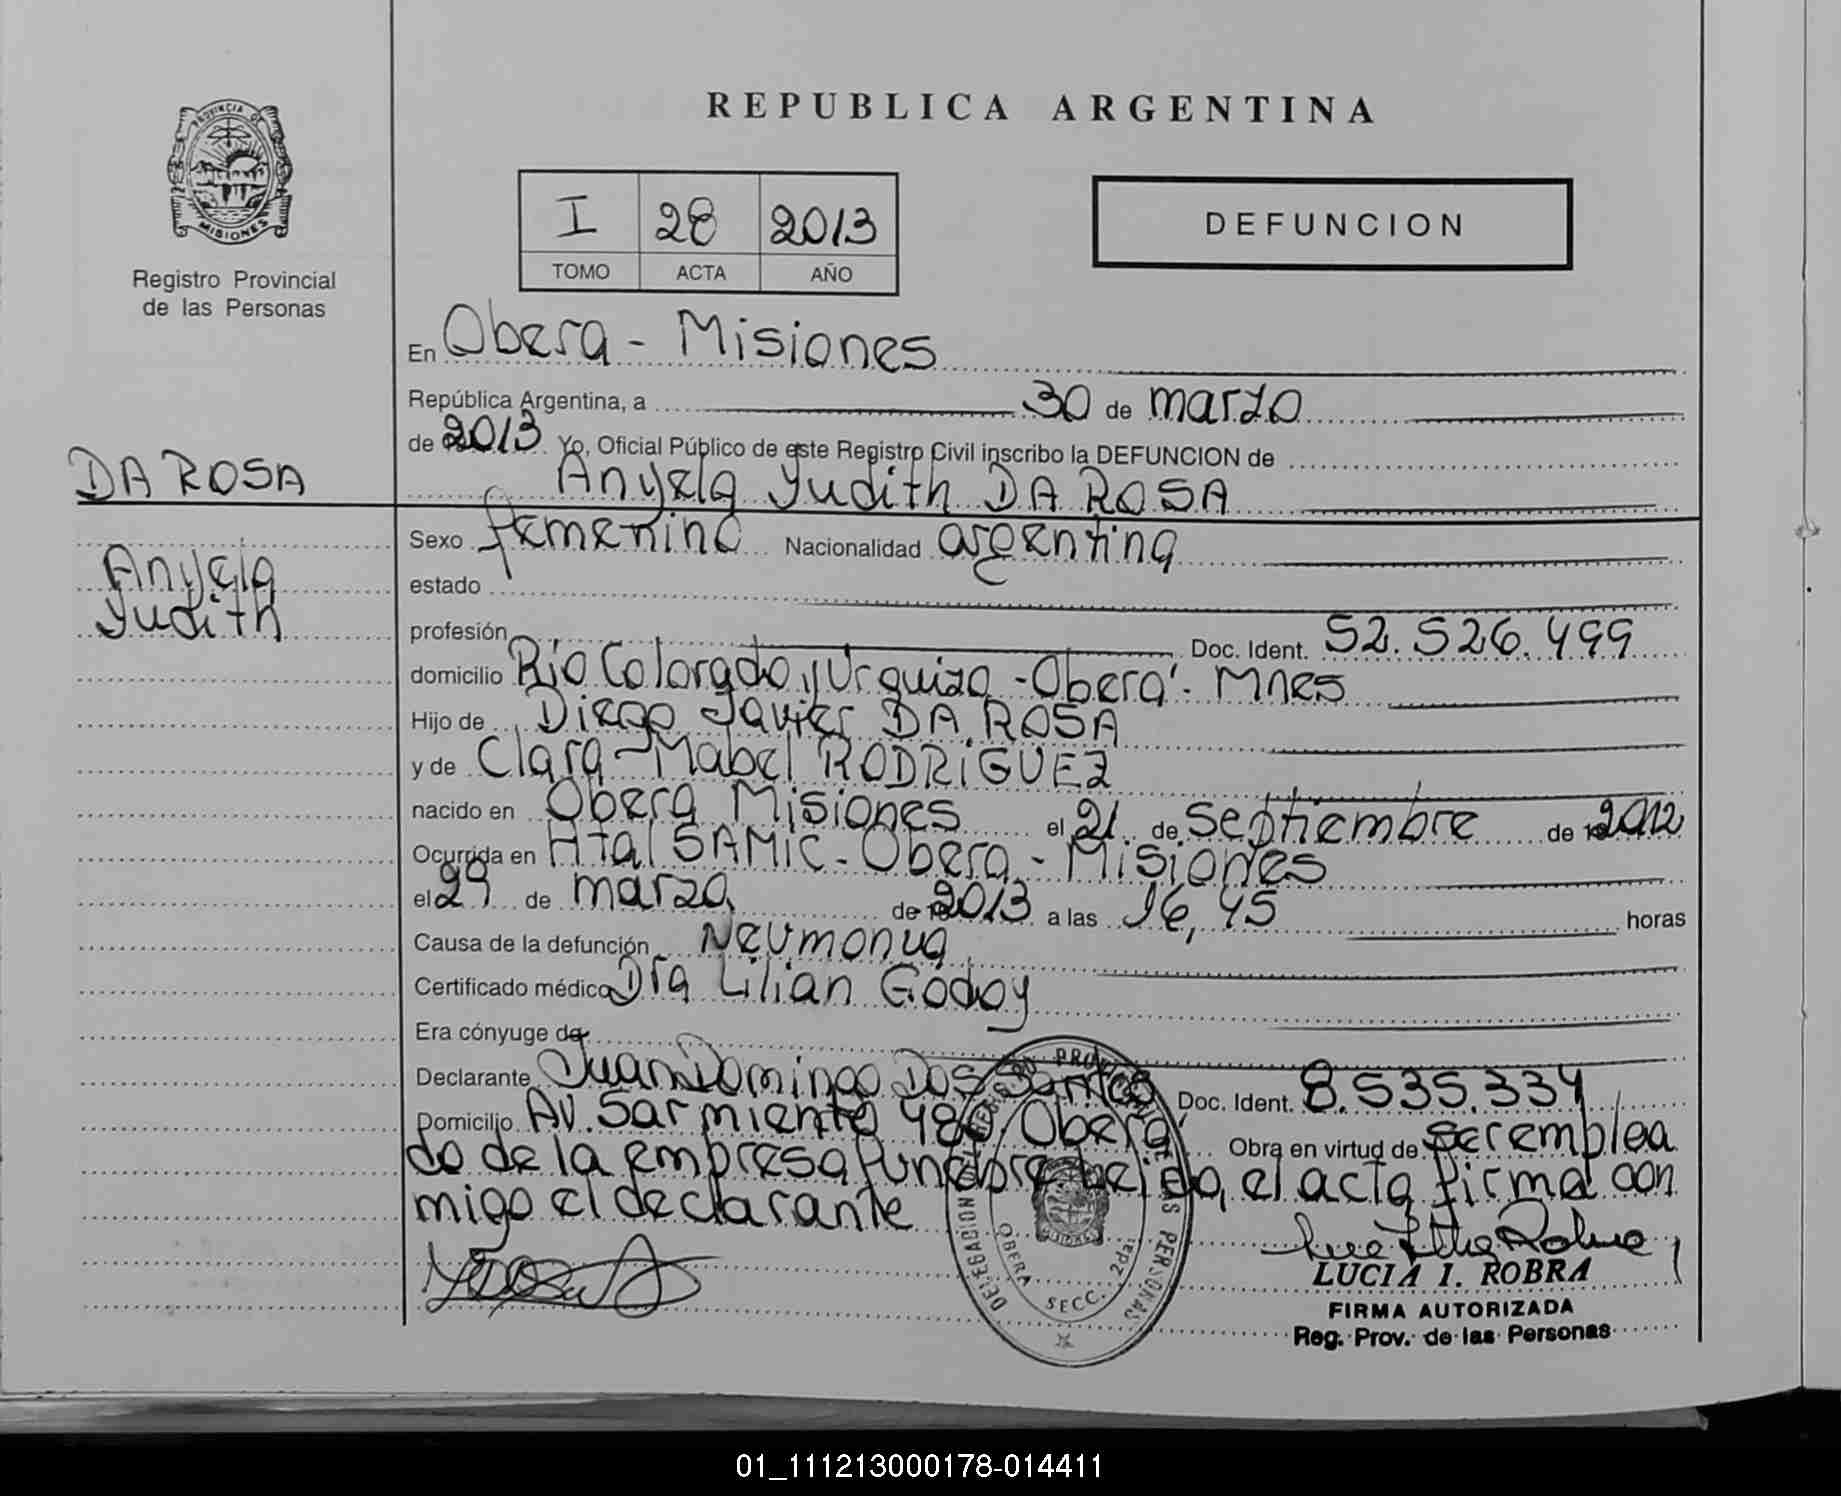 PROVINCIA DE
MISIONES
Registro Provincial
de las Personas
REPUBLICA ARGENTINA
I 28 2013
TOMO ACTA AÑO
DEFUNCION
En Obera - Misiones
República Argentina, a 30 de marzo
de 2013 Yo, Oficial Público de este Registro Civil inscribo la DEFUNCION de
DA ROSA
Anyela Yudith DA ROSA
Sexo femenino Nacionalidad argentina
Anyela
Yudith
estado
profesión Doc. Ident. 52.526.499
domicilio Río Colorado y Urquiza - Oberá - Mnes
Hijo de Diego Javier DA ROSA
y de Clara Mabel RODRIGUEZ
nacido en Obera Misiones el 21 de septiembre de 2012
Ocurrida en Htal SAMIC - Obera - Misiones
el 29 de marzo de 2013 a las 16,45 horas
Causa de la defunción Neumonua
Certificado médico Dra Lilian Godoy
Era cónyuge de
Declarante Juan Domingo Dos Santos Doc. Ident. 8.535.334
Domicilio Av. Sarmiento 480, Oberá Obra en virtud de ser emplea
do de la empresa funebre, el acta firma con
migo el declarante
DELEGACION REGISTRO PROVINCIAL DE LAS PERSONAS
OBERA SECC. 2da.
MISIONES
LUCIA I. ROBRA
FIRMA AUTORIZADA
Reg. Prov. de las Personas
01_111213000178-014411